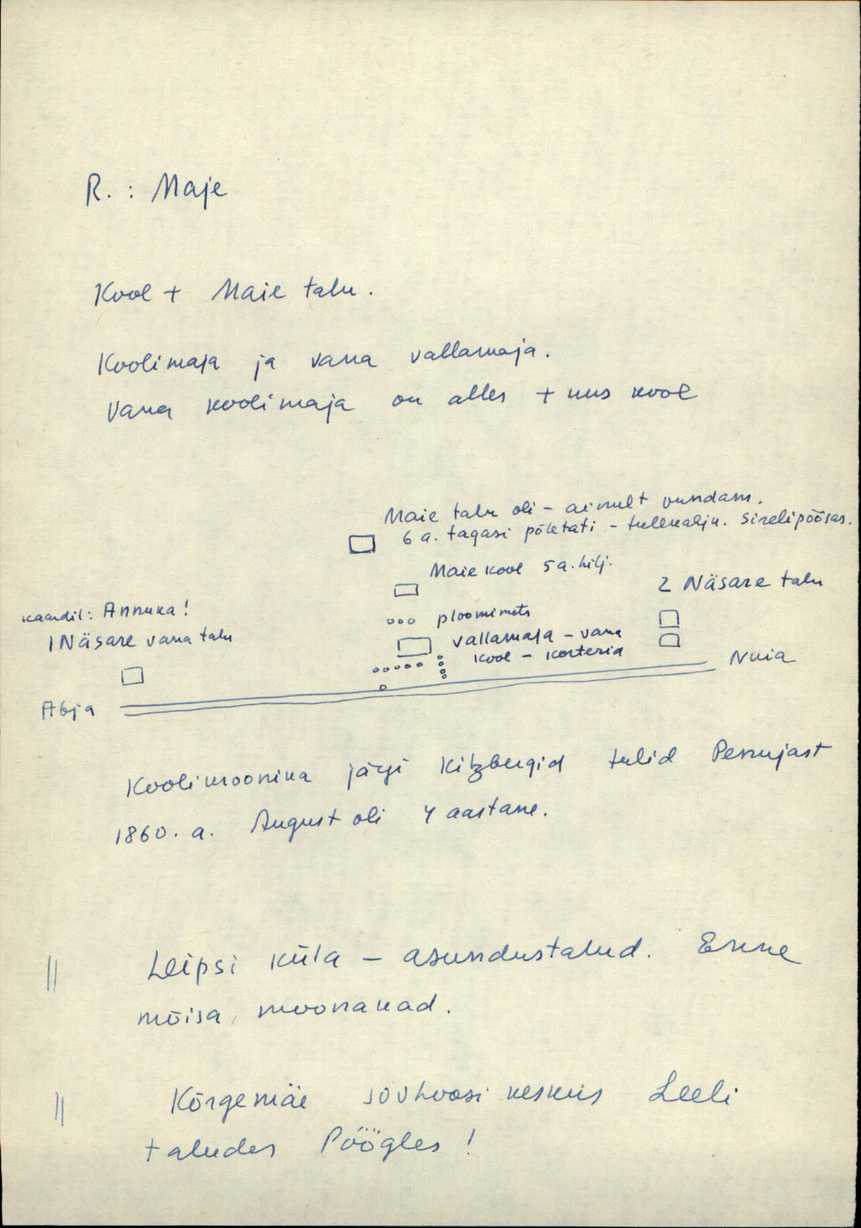 R. : Maje
Kool + Maie talu.
Koolimaja ja vana vallamaja.
Vana koolimaja on alles + uus kool
Maie talu oli - ainult vundam.
6 a. tagasi põletati - tulekahju. Sirelipõõsas.
Maie kool 5 a. hilj.
2 Näsare talu
kaardil: Annuka!
ploomimets
1 Näsare vana talu
vallamaja - vana
kool - korteria
Nuia
Abja
Koolikroonika järgi Kitzbergid tulid Pennujast
1860. a. August oli 4 aastane.
|| Leipsi küla - asundustalud. Enne
mõisa moonakad.
|| Kõrgemäe sovhoosi keskus Leeli
taludes Pöögles!